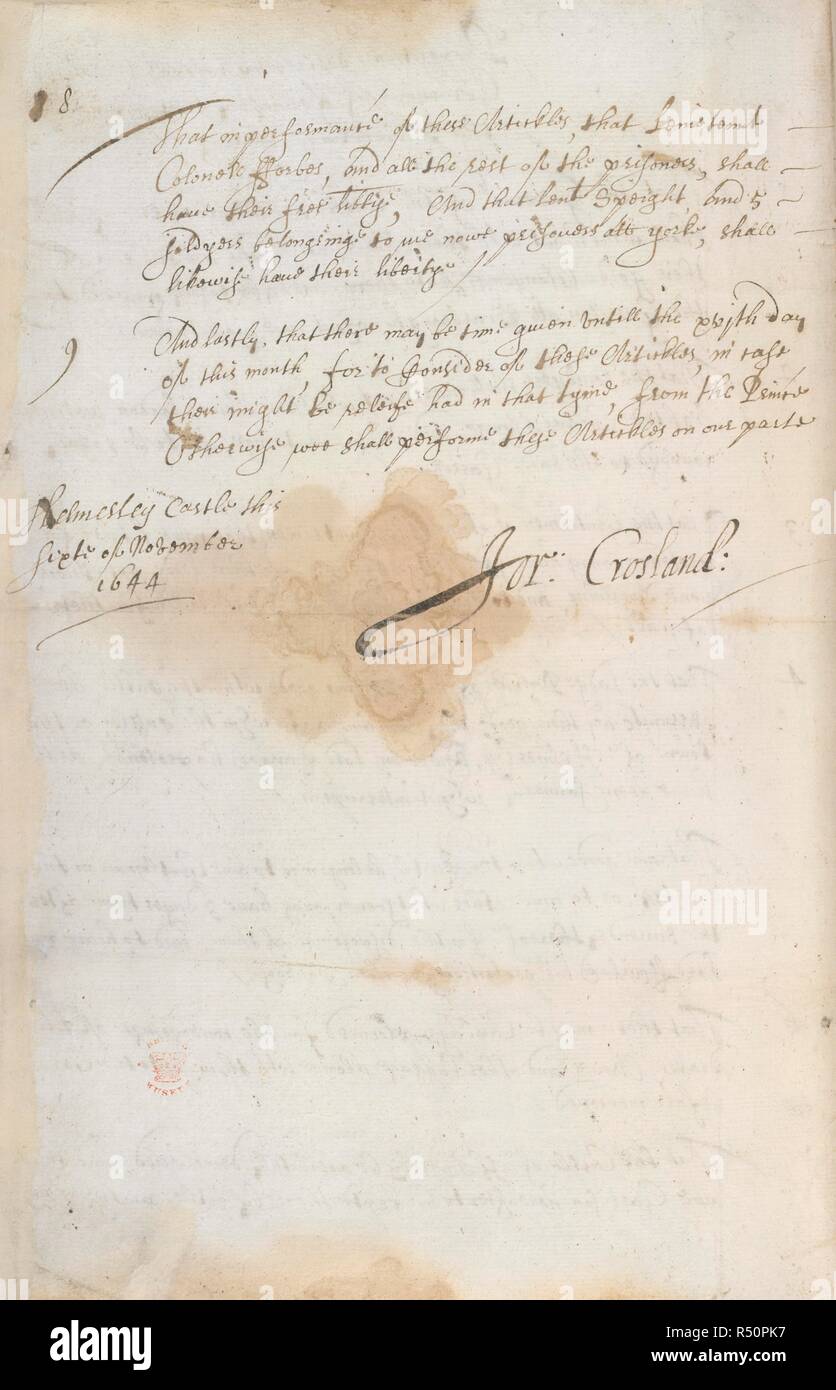 8
That in performance of these Artickles, that Leuietennt
Colonell Fforbes, and all the rest of the prisoners, shall
haue their free libtye, And that Leut Speight and 5
soldyers belonginge to me nowe prisoners att york, shall
likewise haue their libertye
9
And lastly, that there may be time giuen vntill the xvjth day
of this month, for to Consider of these Artickles, in case
their might be releife had in that tyme, from the Prince
Otherwise wee shall performe these Artickles on our parte
Helmesley Castle this
sixte of November
1644
Jor: Crosland:
MUSEUM
alamy
alamy
Image ID: R50PK7
www.alamy.com